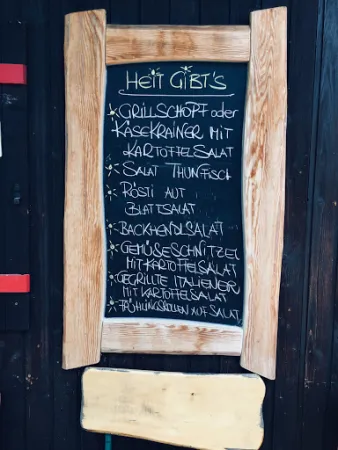 HEIT GIBT'S
GRILLSCHOPF oder
KÄSEKRAINER MIT
KARTOFFELSALAT
SALAT THUNFISCH
RÖSTI AUF
BLATTSALAT
BACKHENDLSALAT
GEMÜSESCHNITZEL
MIT KARTOFFELSALAT
GEGRILLTE ITALIENER
MIT KARTOFFELSALAT
FRÜHLINGSROLLEN AUF SALAT